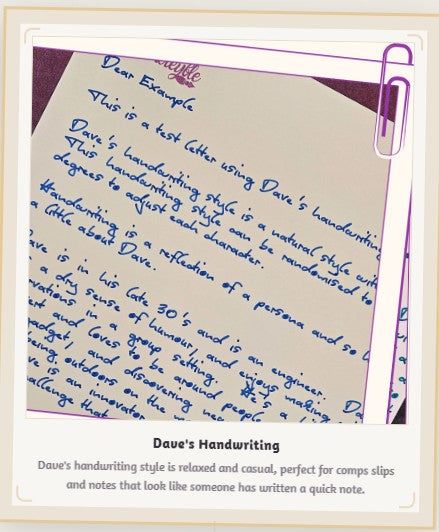 Dear Example
This is a test letter using Dave's handwriting
Dave's handwriting style is a natural style with
This handwriting style can be randomised to
degrees to adjust each character.
Handwriting is a reflection of a persona and so
a little about Dave.
ave is in his late 30's and is an engineer. Da
a dry sense of humour, and enjoys making
rvations in a group setting. He's a
ert and loves to be around people
gadget, and discovering new
being outdoors on the
ve is an innovator
allenge that
Dave's Handwriting
Dave's handwriting style is relaxed and casual, perfect for comps slips
and notes that look like someone has written a quick note.